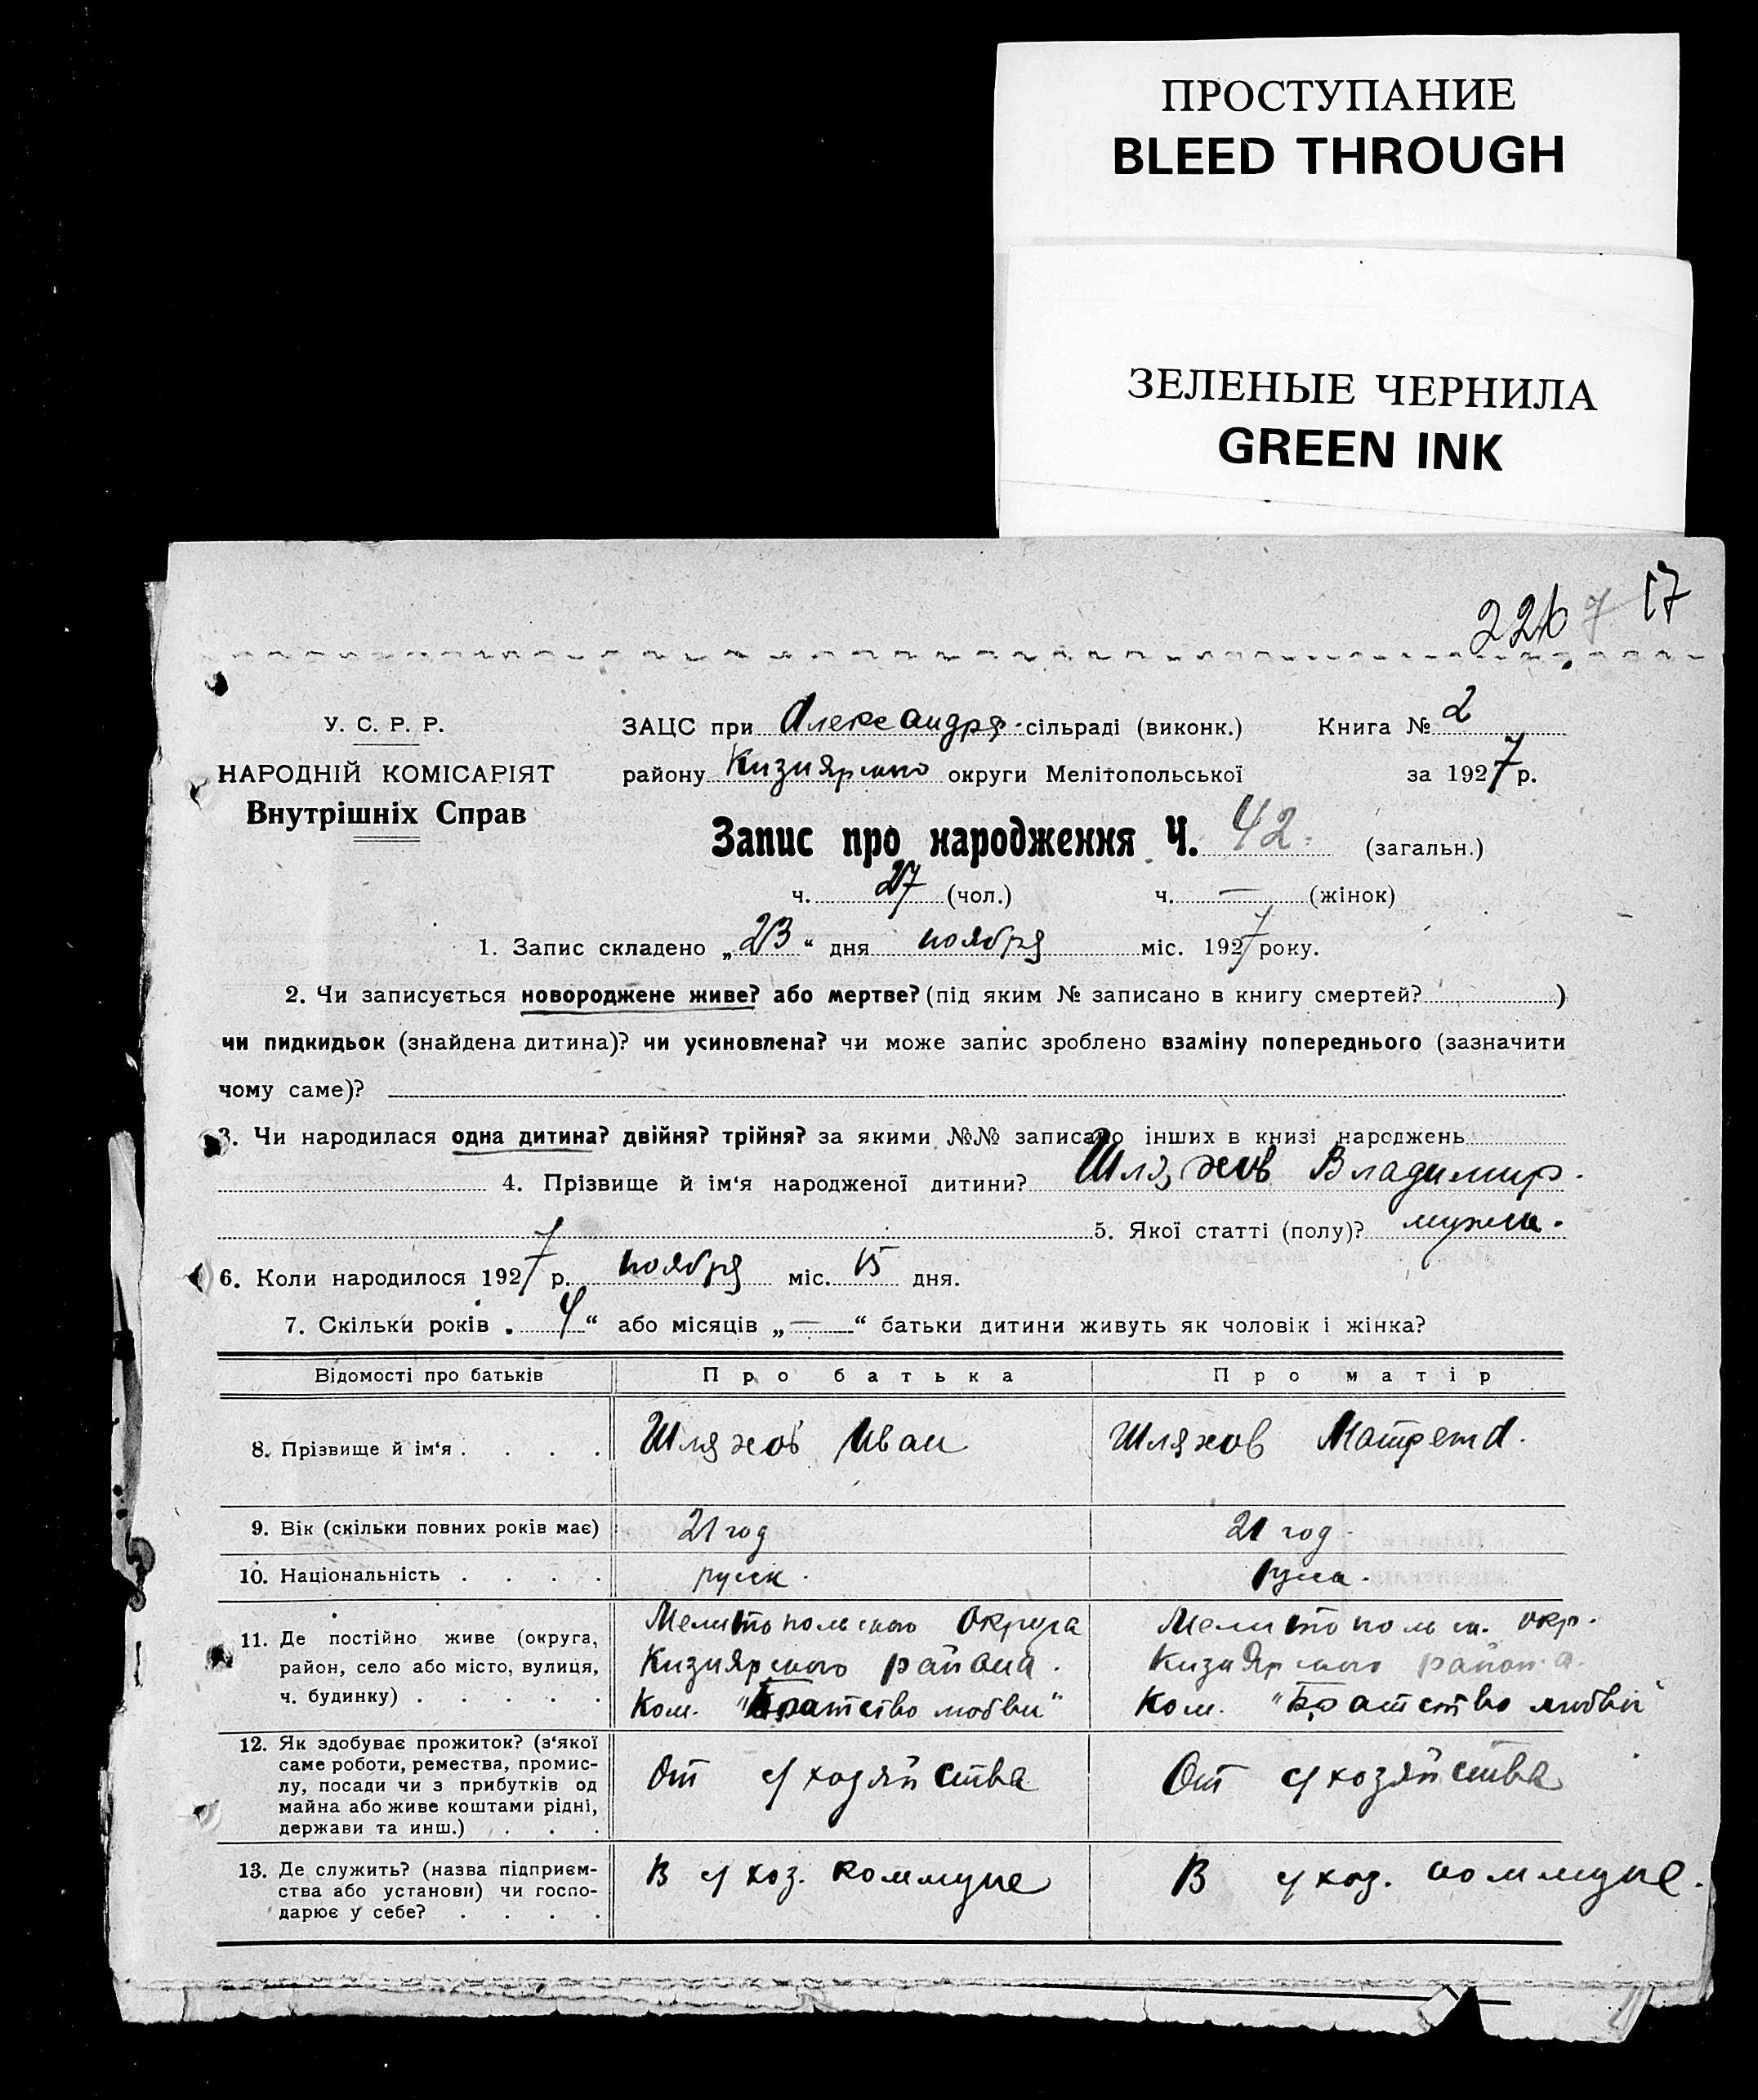 ПРОСТУПАНИЕ
BLEED THROUGH
ЗЕЛЕНЫЕ ЧЕРНИЛА
GREEN INK
17
У. С. Р. Р.
НАРОДНІЙ КОМІСАРІЯТ
Внутрішніх Справ
ЗАЦС при Александр. сільраді (виконк.) Книга № 2
району Кизиярского округи Мелітопольської за 1927 р.
Запис про народження Ч. 42. (загальн.)
ч. 27 (чол.) ч. — (жінок)
1. Запис складено „23“ дня ноября міс. 1927 року.
2. Чи записується новороджене живе? або мертве? (під яким № записано в книгу смертей? )
чи пидкидьок (знайдена дитина)? чи усиновлена? чи може запис зроблено взаміну попереднього (зазначити
чому саме)?
3. Чи народилася одна дитина? двійня? трійня? за якими №№ записано інших в книзі народжень
4. Прізвище й ім‘я народженої дитини? Шляхов Владимир.
5. Якої статті (полу)? мужск.
6. Коли народилося 1927 р. ноября міс. 15 дня.
7. Скільки років „4“ або місяців „—“ батьки дитини живуть як чоловік і жінка?
Відомості про батьків Про батька Про матір
8. Прізвище й ім‘я . . . . Шляхов Иван Шляхов Матрена.
9. Вік (скільки повних років має) 21 год 21 год.
10. Національність . . . . русск. русск.
11. Де постійно живе (округа,
район, село або місто, вулиця,
ч. будинку) . . . . .
Мелитопольского Округа
Кизиярского района.
Ком. "Братство любви"
Мелитопольск. окр.
Кизиярского района.
Ком. "Братство любви"
12. Як здобуває прожиток? (з‘якої
саме роботи, ремества, промис-
лу, посади чи з прибутків од
майна або живе коштами рідні,
держави та инш.) . . .
От с/хозяйства
От с/хозяйства
13. Де служить? (назва підприєм-
ства або установи) чи госпо-
дарює у себе? . . . .
В с/хоз. коммуне
В с/хоз. коммуне.